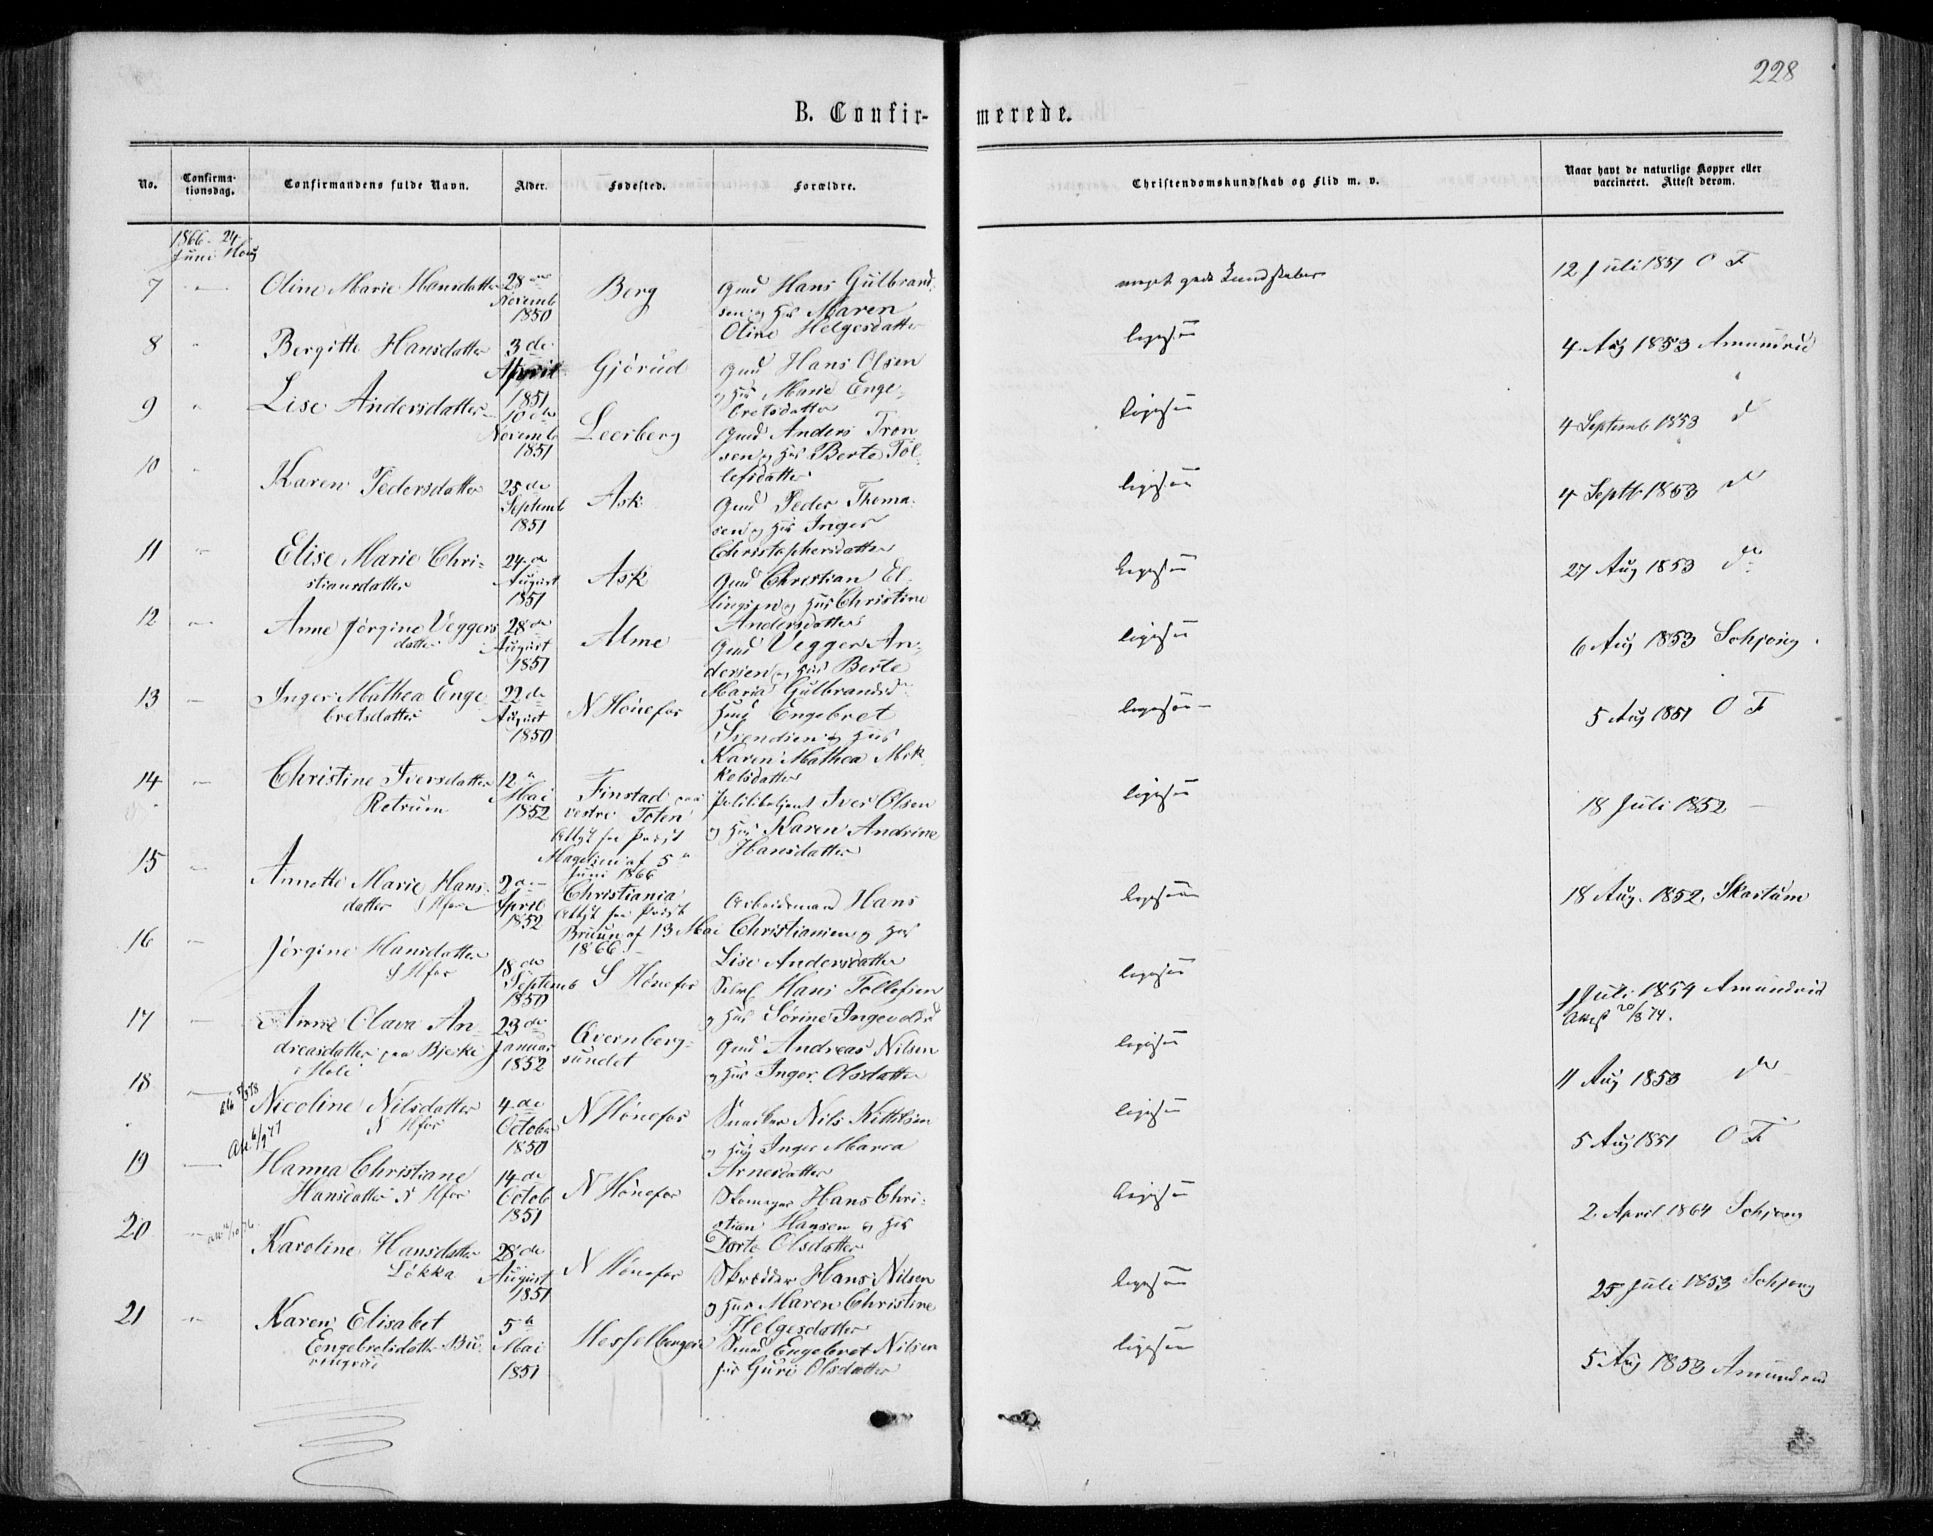 228
B. Confir- merede.
No. Confirma-tionsdag. Confirmandens fulde Navn. Alder. Fødested. Forældre. Christendomskundskab og Flid m. v. Naar havt de naturlige Kopper eller vaccineret. Attest derom.
1866 - 24
Juni Houg
7 Oline Marie Hansdatter 28de Novemb 1850 Berg Gmd Hans Gulbrandsen og Hus Maren Oline Helgesdatter meget gode Kundskaber 12 Juli 1851 O F
8 Bergitte Hansdatter 3de April 1851 Gjörud Gmd Hans Olsen og Hus Marie Engebretsdatter ligesaa 4 Aug 1853 Amundrud
9 Lise Andersdatter 10de Novemb 1851 Leerberg Gmd Anders Tronsen og Hus Berte Tollefsdatter ligesaa 4 Septemb 1853 d
10 Karen Pedersdatter 25de Septemb 1851 Ask Gmd Peder Thomasen og Hus Inger Christophersdatter ligesaa 4 Septb 1853 do
11 Elise Marie Christiansdatter 24de August 1851 Ask Gmd Christian Ellingsen og Hus Christine Andersdatter ligesaa 27 Aug 1853 do
12 Anne Jörgine Veggersdatter 28de August 1851 Alme Gmd Vegger Andersen og Hus Berte Maria Gulbrandsd ligesaa 6 Aug 1853 Schjong
13 Inger Mathea Engebretsdatter 22de August 1850 N Hönefos Hmd Engebret Svendsen og Hus Karen Mathea Mikkelsdatter ligesaa 5 Aug 1851 O F
14 Christine Iversdatter Rotrum 12 Mai 1852 Finstad paa vestre Toten Attest fra Præst Magelsen af 5 Juni 1866 Politibetjent Iver Olsen og Hus Karen Andrine Hansdatter ligesaa 18 Juli 1852
15 Annette Marie Hansdatter S Hfos 2de April 1852 Christiania Attest fra Præst Bruun af 13 Mai 1866 Arbeidsmand Hans Christiansen og Hus Lise Andersdatter ligesaa 18 Aug. 1852. Skartum
16 Jörgine Hansdatter S Hfos 18de Septemb 1850 S Hönefos Hans Tollefsen og Hus Sörine Ingevoldsd ligesaa 1 Juli 1854 Amundrud
Attest 20/8 74.
17 Anne Olava Andreasdatter paa Bjerke i Hole 23de Januar 1852 Avernbergsundet Gmd Andreas Nilsen og Hus Inger Olsdatter ligesaa 11 Aug 1853 do
18 Nicoline Nilsdatter N Hfos 4de October 1850 N Hönefos Snedker Nils Kittilsen og Hus Inger Maria Arnesdatter ligesaa 5 Aug 1851 O F
19 Hanna Christiane Hansdatter N Hfos 14de Octob 1851 N Hönefos Skomager Hans Christian Hansen og Hus Dorte Olsdatter ligesaa 2 April 1864 Schjong
20 Karoline Hansdatter Lökka 28de August 1851 N Hönefos Skrædder Hans Nilsen og Hus Maren Christine Helgesdatter ligesaa 25 Juli 1853 Schjong
21 Karen Elisabet Engebretsdatter 5te Mai 1851 Hesselbergeie Engebret Nilsen Hus Guri Olsdatter ligesaa 5 Aug 1853 Amundrud